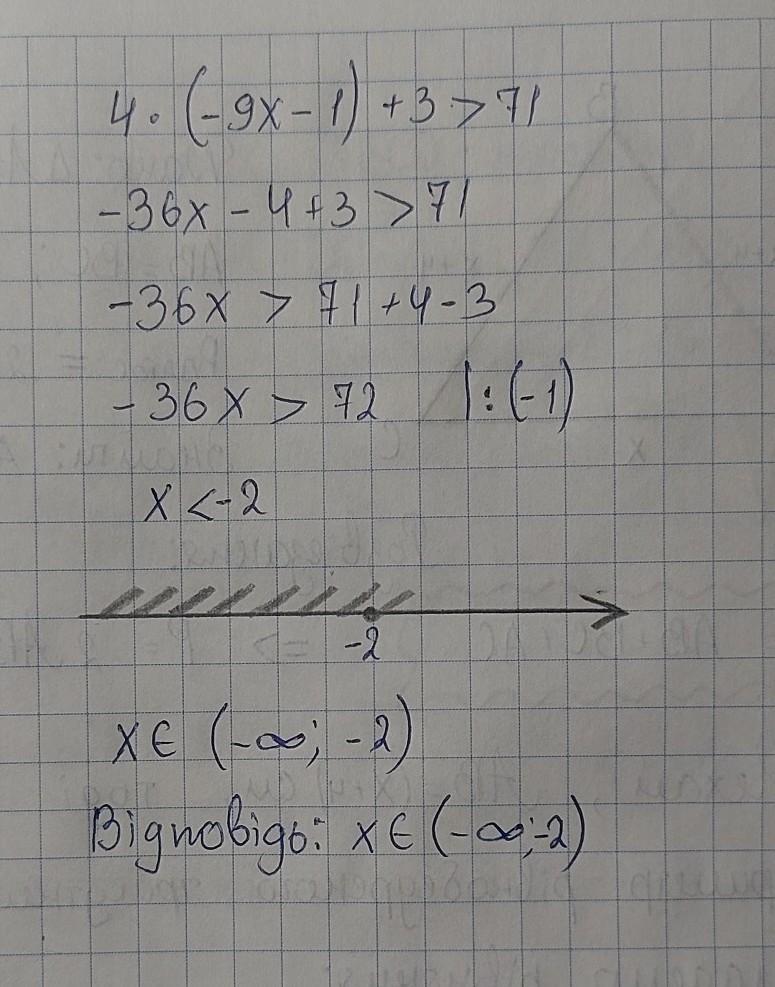 4 · (-9x - 1) + 3 > 71
-36x - 4 + 3 > 71
-36x > 71 + 4 - 3
-36x > 72 |: (-1)
x < -2
-2
x ∈ (-∞; -2)
Відповідь: x ∈ (-∞; -2)